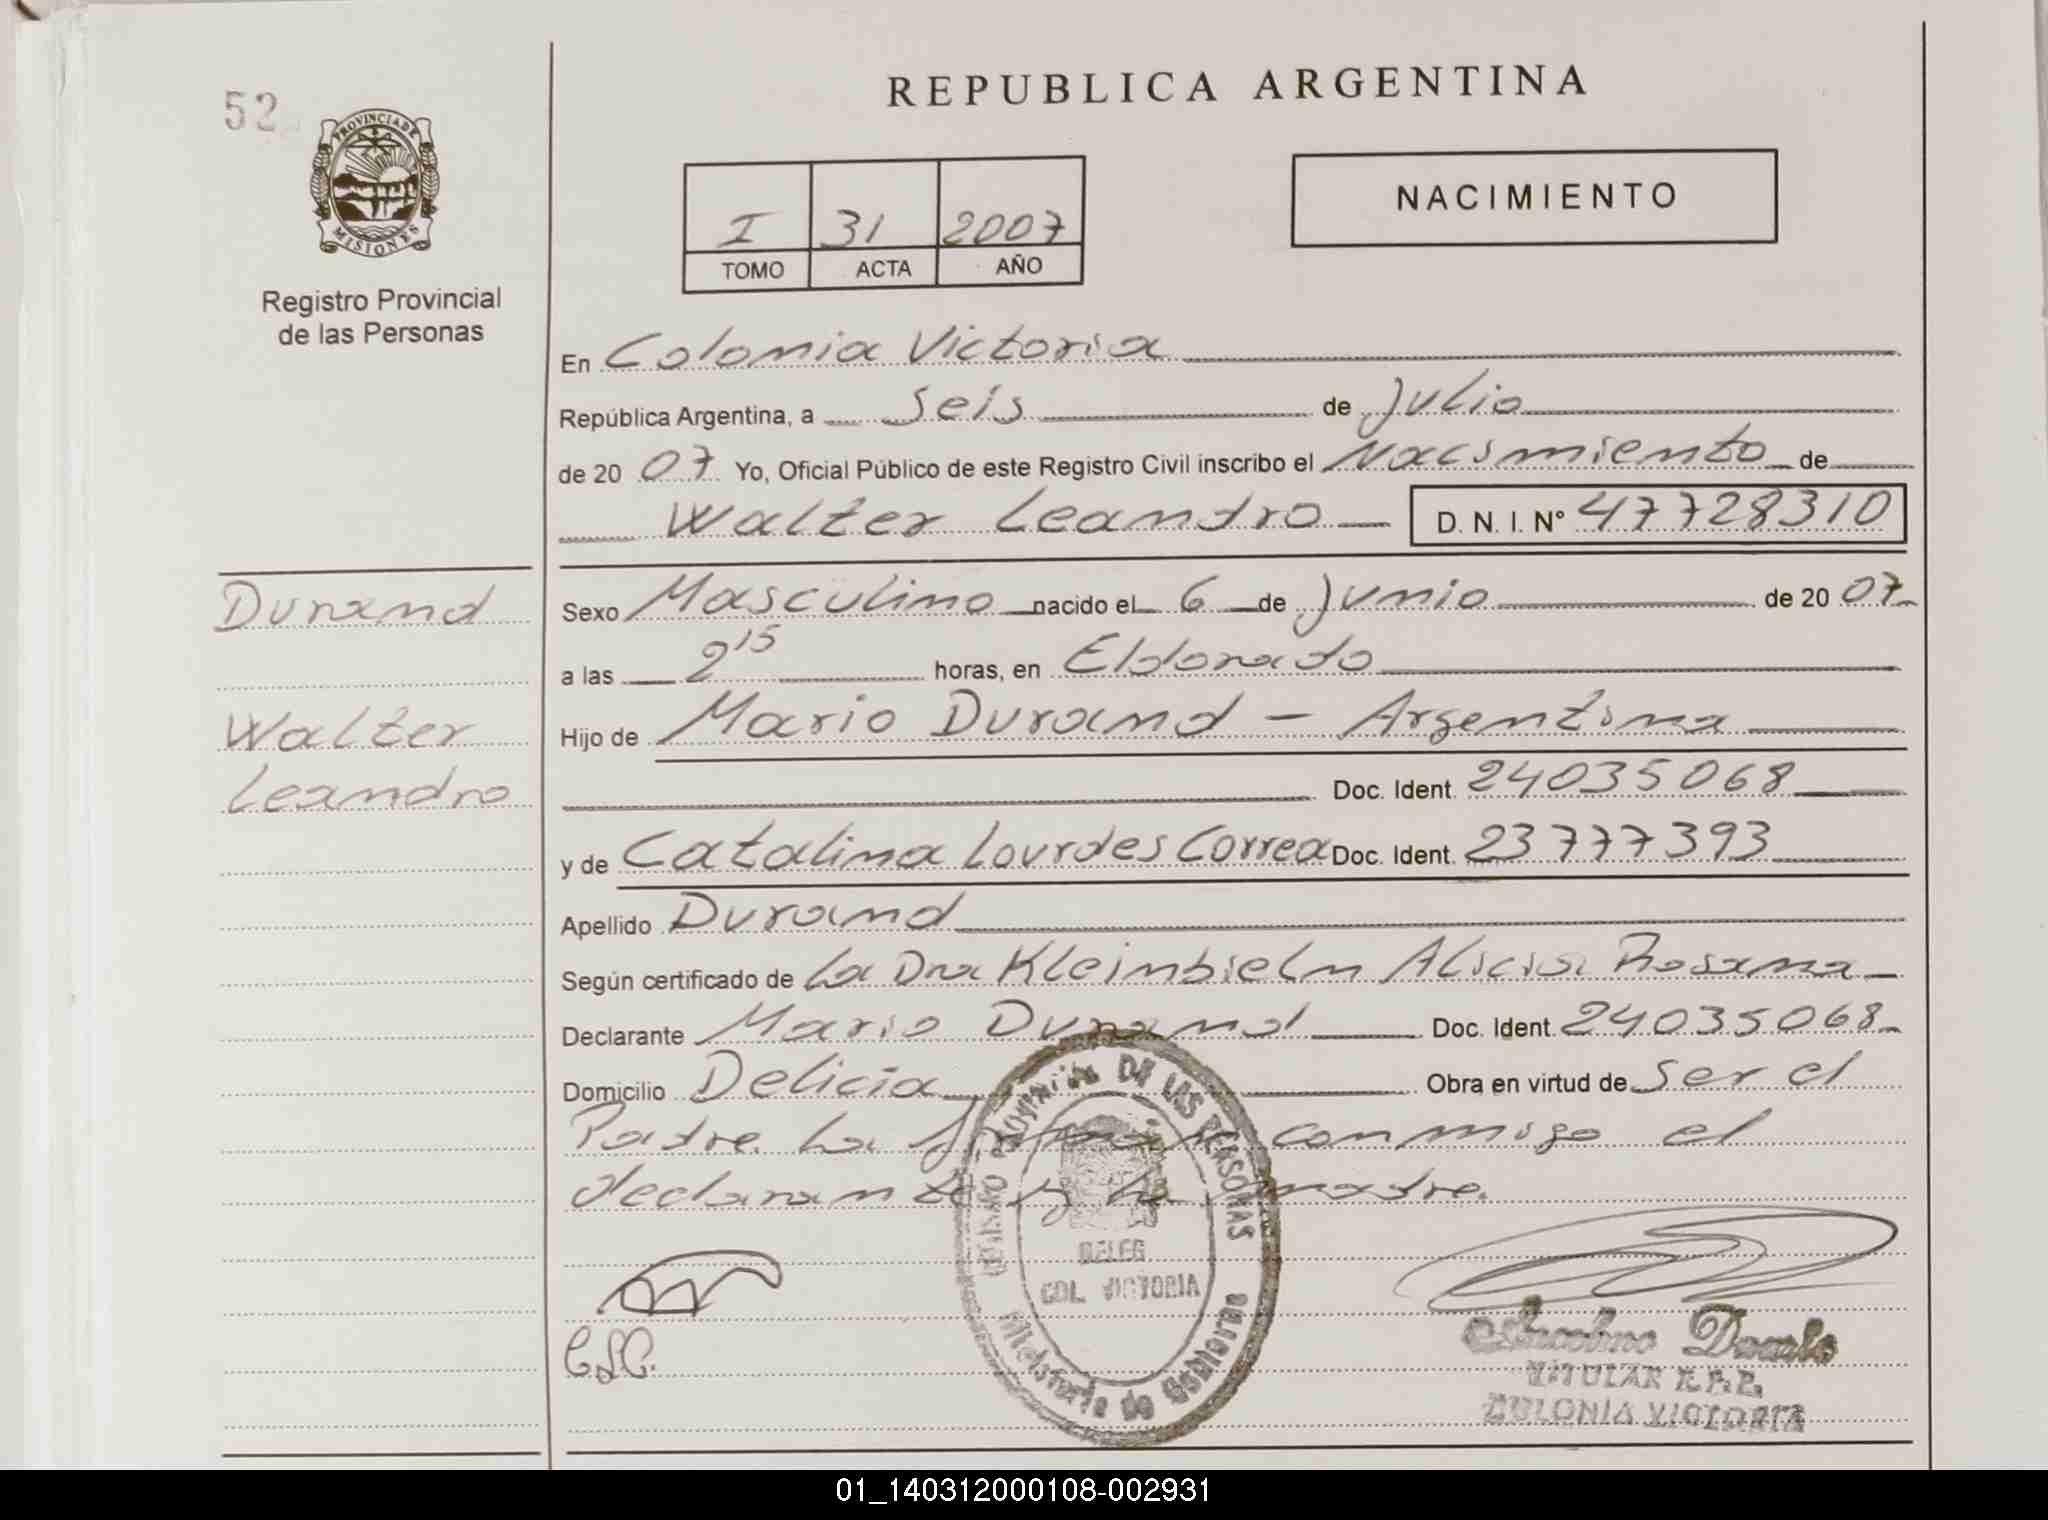 52
PROVINCIA DE
MISIONES
Registro Provincial
de las Personas
REPUBLICA ARGENTINA
I 31 2007
TOMO ACTA AÑO
NACIMIENTO
En Colonia Victoria
República Argentina, a seis de Julio
de 2007 Yo, Oficial Público de este Registro Civil inscribo el Nacimiento de
Walter Leandro D. N. I. Nº 47728310
Durand
Sexo Masculino nacido el 6 de Junio de 2007
a las 2 15 horas, en Eldorado
Walter
Hijo de Mario Durand - Argentina
Leandro
Doc. Ident. 24035068
y de Catalina Lourdes Correa Doc. Ident. 23777393
Apellido Durand
Según certificado de La Dra Kleinbieln Alicia Rosana
Declarante Mario Durand Doc. Ident. 24035068
Domicilio Delicia Obra en virtud de ser el
Padre. La firman conmigo el
declarante y la madre.
REGISTRO PROVINCIAL DE LAS PERSONAS
DELEG
COL VICTORIA
Ministerio de Gobierno
C.L.C.
TITULAR R.P.P.
COLONIA VICTORIA
01_140312000108-002931